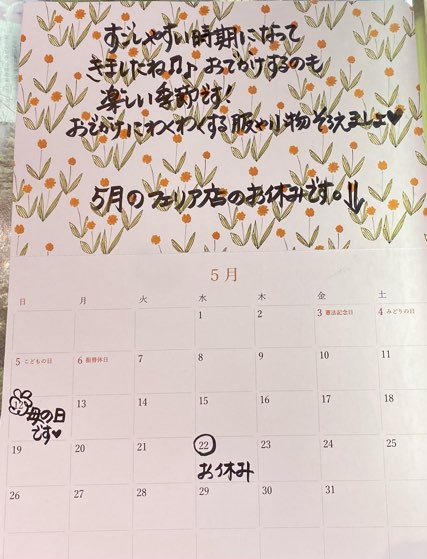 すごしやすい時期になって
きましたね♫♪おでかけするのも
楽しい季節です!
おでかけにわくわくする服や小物そろえましょ♥
5月のフェリア店のお休みです。↓
5月
日 月 火 水 木 金 土
1 2 3 憲法記念日 4 みどりの日
5 こどもの日 6 振替休日 7 8 9 10 11
12 母の日です♥ 13 14 15 16 17 18
19 20 21 22 お休み 23 24 25
26 27 28 29 30 31